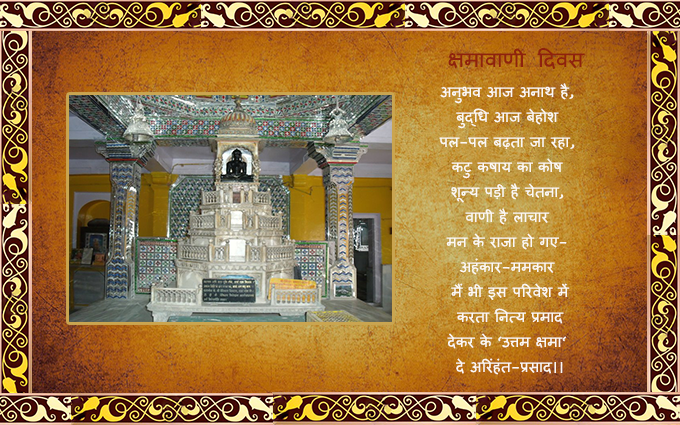 क्षमावाणी दिवस
अनुभव आज अनाथ है,
बुद्धि आज बेहोश
पल-पल बढ़ता जा रहा,
कटु कषाय का कोष
शून्य पड़ी है चेतना,
वाणी है लाचार
मन के राजा हो गए-
अहंकार-ममकार
मैं भी इस परिवेश में
करता नित्य प्रमाद
देकर के ‘उत्तम क्षमा‘
दे अरिंहंत-प्रसाद।।